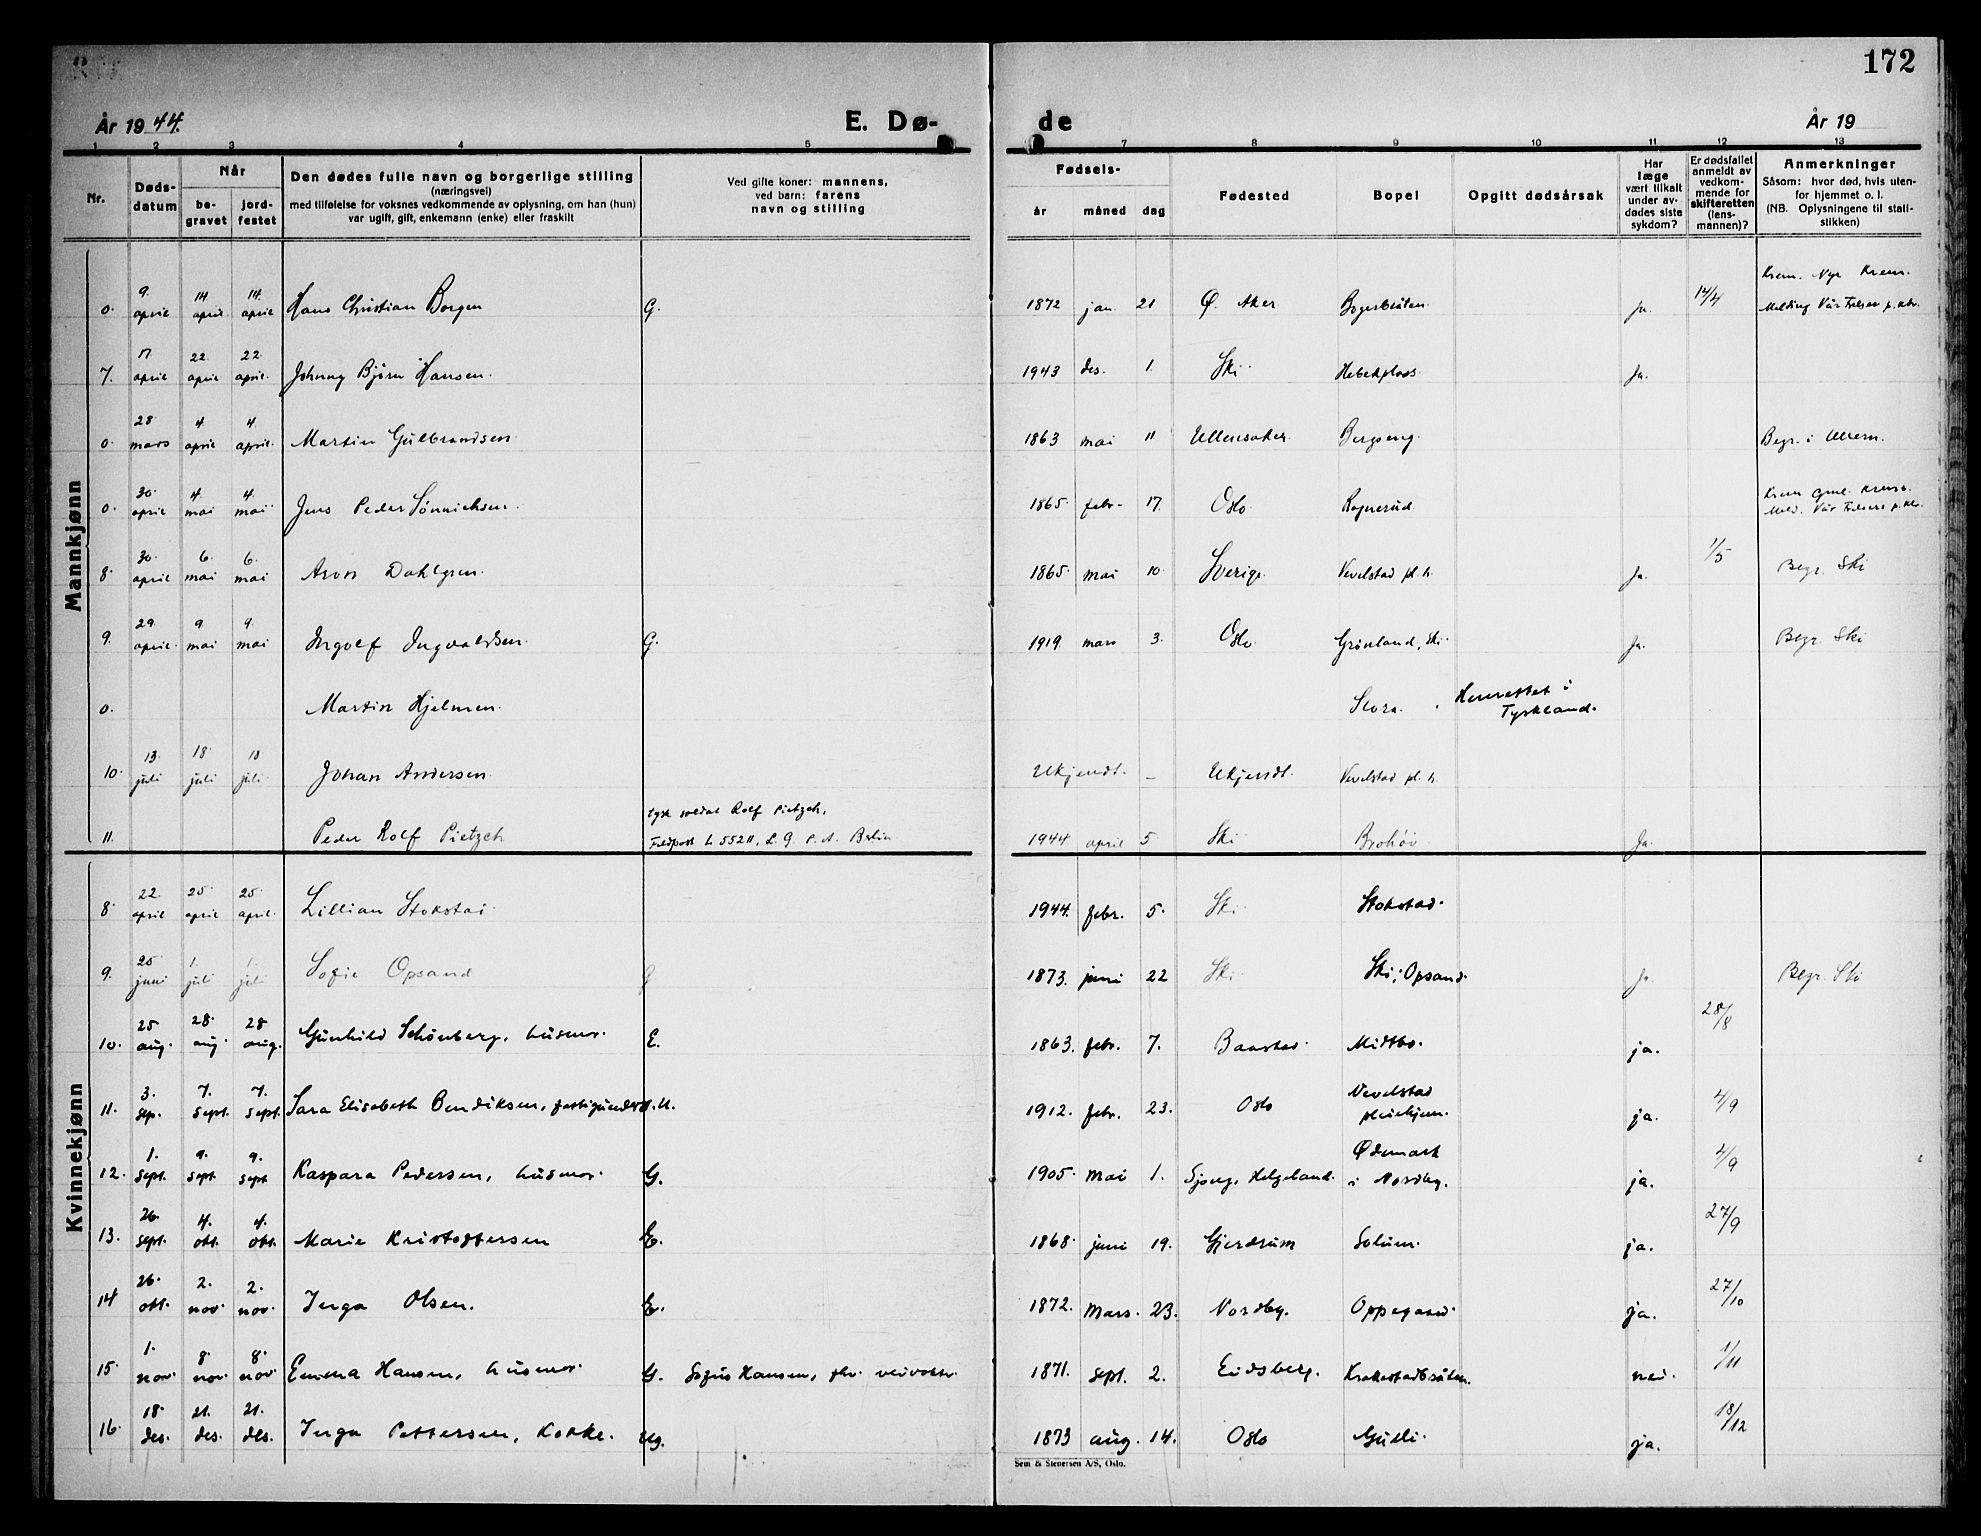 172
År 19 44.
E. Dø-
de
År 19
1 2 3 4 5 7 8 9 10 11 12 13
Nr.
Døds-
datum
Når
be-
gravet
jord-
festet
Den dødes fulle navn og borgerlige stilling
(næringsvei)
med tilføielse for voksnes vedkommende av oplysning, om han (hun)
var ugift, gift, enkemann (enke) eller fraskilt
Ved gifte koner: mannens,
ved barn: farens
navn og stilling
Fødsels-
år måned dag
Fødested
Bopel
Opgitt dødsårsak
Har
læge
vært tilkalt
under av-
dødes siste
sykdom?
Er dødsfallet
anmeldt av
vedkom-
mende for
skifteretten
(lens-
mannen)?
Anmerkninger
Såsom: hvor død, hvis uten-
for hjemmet o. l.
(NB. Oplysningene til stall-
slikken)
Mannkjønn
0. 9. april 14 april 14. april Hans Christian Borgen G. 1872 jan. 21 Ø. Aker Bogerbråten Ja. 14/4 Krem. Nye Krem.
Melding Vår Frelser p.kbr.
7. 17 april 22 april 22 april. Johnny Bjørn Hansen. 1943 des. 1. Ski Hebekplass. Ja.
0. 28 mars 4 april 4. april. Martin Gulbrandsen 1863 mai 11 Ullensaker. Bergseng. Begr. i Ullern.
0. 30 april 4. mai 4. mai Jens Peder Sønnichsen. 1865. febr- 17. Oslo. Rognerud. Krem. Gml. Krem.
Meld. Vår Frelsers p.kbr.
8. 30. april 6. mai 6. mai Aron Dahlgren. 1865. mai 10. Sverige. Vevelstad pl. h. Ja. 1/5 Begr. Ski
9. 29. april. 9. mai 9. mai Ingolf Ingvaldsen. G. 1919. mars 3. Oslo. Grønland, Ski Ja. Begr. Ski
0. Martin Hjelmen. Slora. Henrettet i
Tyskland.
10. 13. juli 18. juli 18 juli. Johan Andersen. Ukjendt. – Ukjendt. Vevelstad pl. h.
11. Peder Rolf Pietzch tysk soldat Rolf Pietzch,
Feldpost L 55211, L. G. P. A. Berlin 1944 april 5 Ski Brohøv. Ja.
Kvinnekjønn
8. 22. april 25. april 25. april. Lillian Stokstad 1944. febr. 5. Ski. Stokstad.
9. 25 juni 1. juli 1. juli Sofie Opsand G 1873. juni 22 Ski. Ski, Opsand. Ja. Begr. Ski
10. 25 aug. 28. aug. 28 aug. Gunhild Schønberg, husmor. E. 1863. febr. 7. Baastad. Midtbo. ja. 28/8
11. 3. sep. 7. sept. 7. sept. Sara Elisabeth Bendiksen, U. 1912. febr. 23. Oslo Vevelstad
pleiehjem. ja. 4/9
12. 1. sept. 9. sept. 9. sept Kaspara Pedersen, husmor. G. 1905. mai 1. Sjona, Helgeland. Ødemark
i Nordby. ja. 4/9
13. 26. sept. 4. okt. 4. okt. Marie Kristoffersen E. 1868. juni 19. Gjerdrum Solum. ja. 27/9
14 26. okt. 2. nov. 2. nov. Inga Olsen. E. 1872. mars. 23. Nordby. Oppegaard. ja. 27/10
15. 1. nov. 8. nov. 8. nov. Emma Hansen, husmor G. Sofus Hansen, fhv. veivokter 1871. sept. 2. Eidsberg. Krakestadbråten. nei. 1/11
16. 18. des. 21. des. 21. des. Inga Pettersen, kokke. Ug. 1873 aug. 14. Oslo Gulli. ja. 18/12
Sem & Stenersen A/S, Oslo.